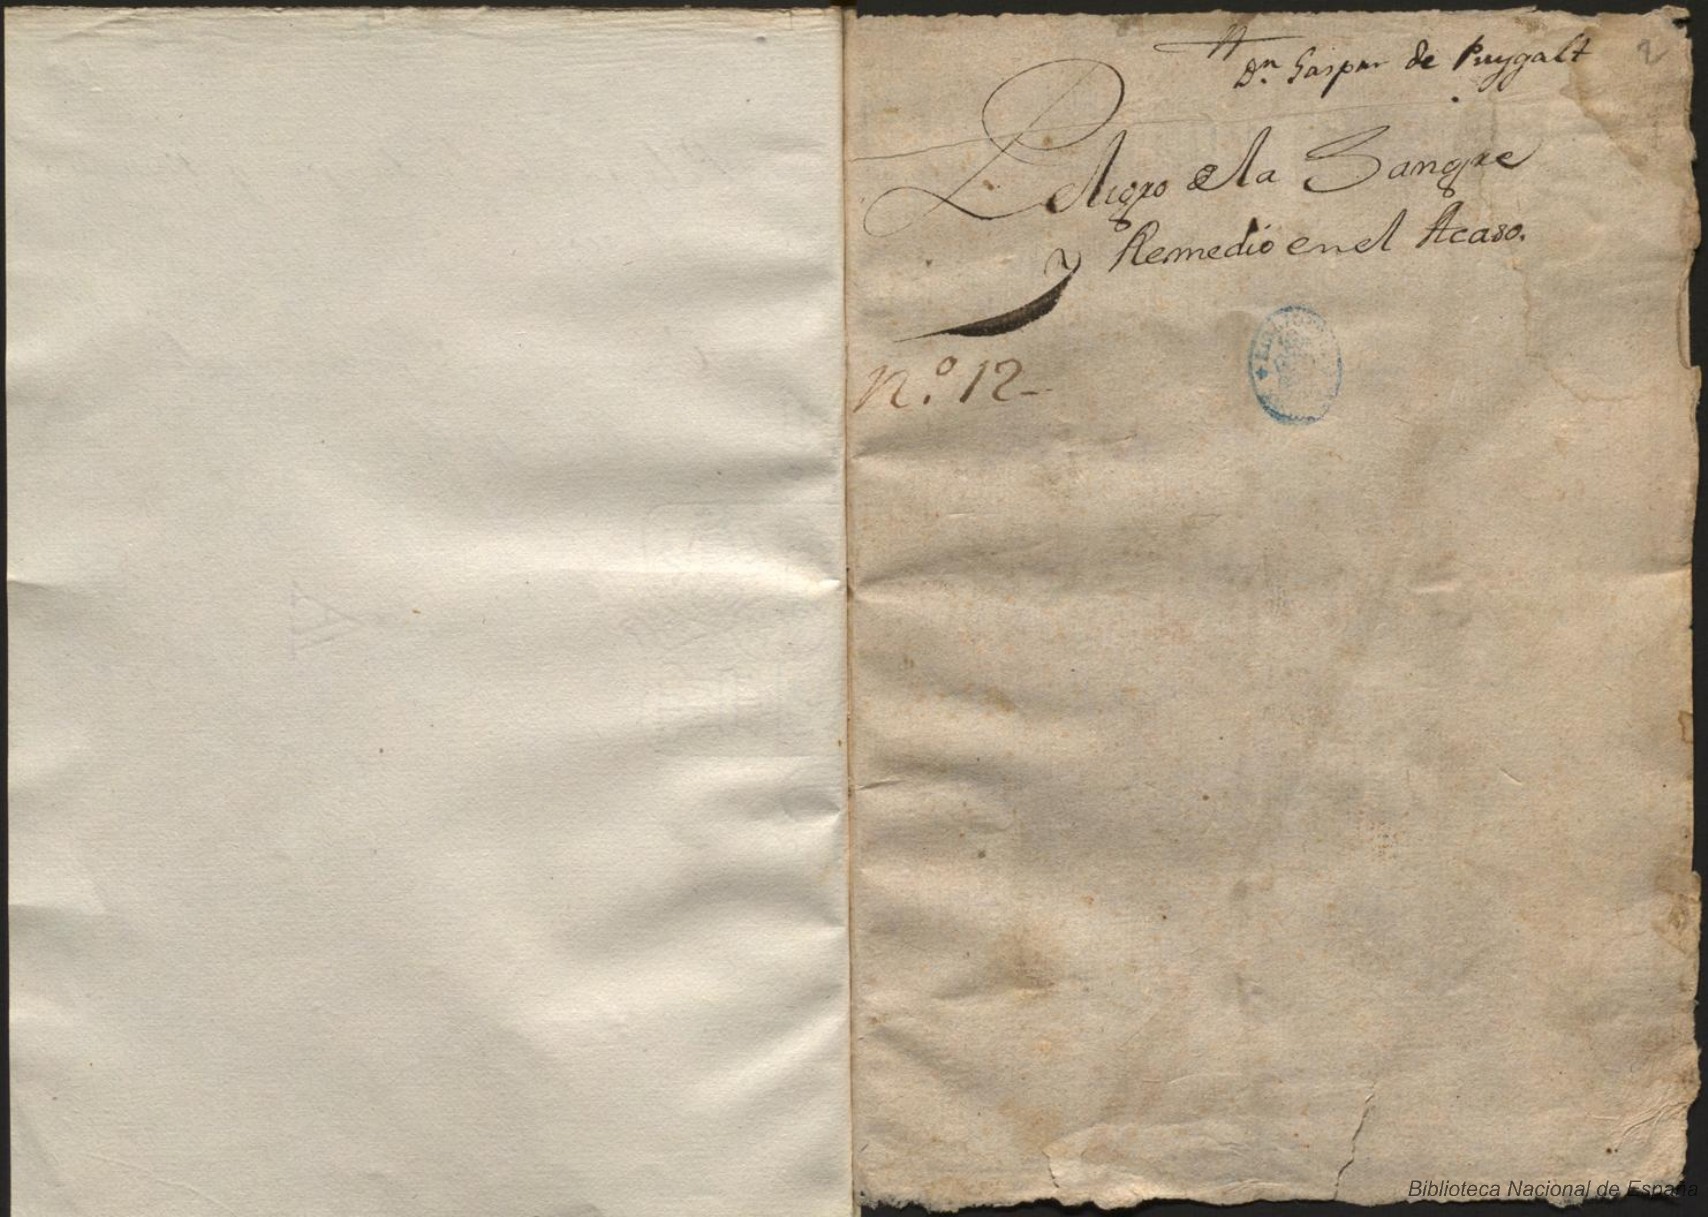 2
Dn. Gaspar de Puygalt
Peligro en la Sangre
y Remedio en el Acaso.
n.º 12
Biblioteca Nacional de España